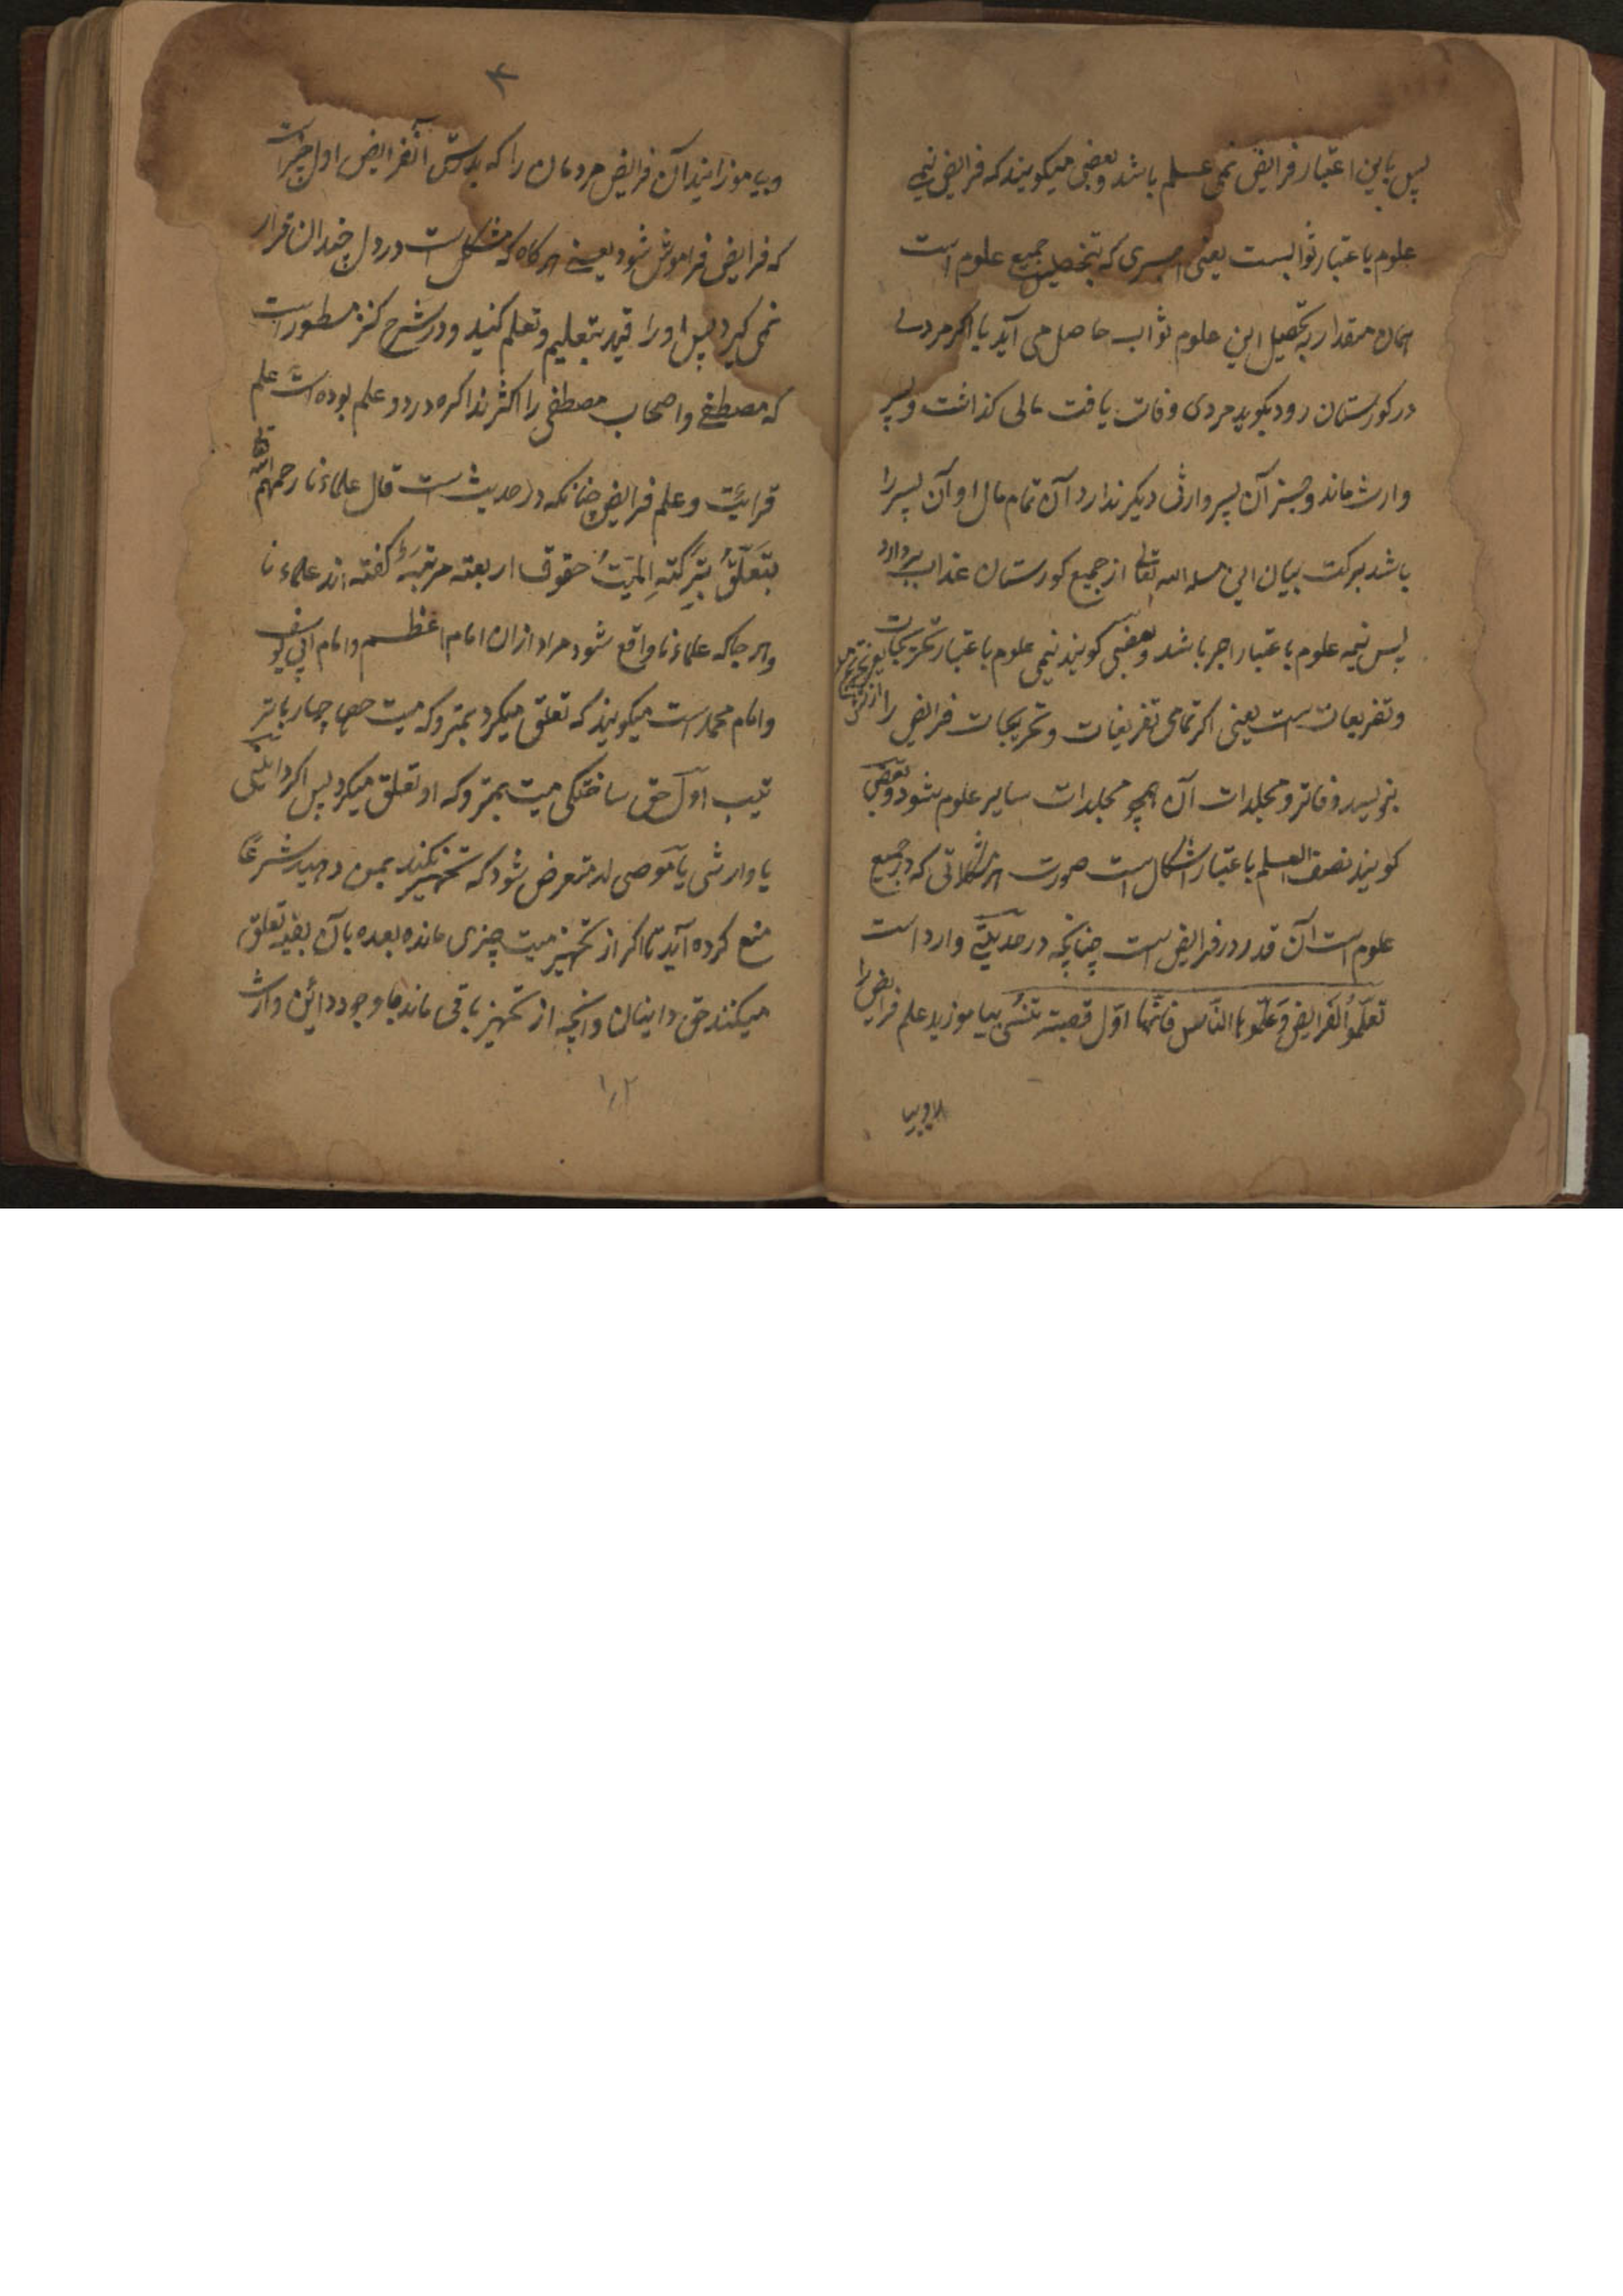 پس باین اعتبار فرایض نیمی علم باشد و بعضی میکویند که فرایض نیمی
علوم باعتبار ثوابست یعنی که بتحصیل جمیع علوم است
همان مقدار بتحصیل این علوم ثواب حاصل می آید یا اکر مردی
در کورستان رود بکوید مردی وفات یافت مالی کذاشت و پسر
وارث ماند و جز آن پسر وارثی دیکر ندارد آن تمام مال او آن پسر را
باشد برکت بیان این مسله الله تعالی از جمیع کورستان عذاب بردارد
پس نیمه علوم باعتبار اجر باشد و بعضی کویند نیمی علوم باعتبار تخریجات
و تفریعات است یعنی اکر تمامی تفریعات و تخریجات فرایض را
بنویسد دفاتر و مجلدات آن همچو مجلدات سایر علوم شود و بعضی
کویند نصف العلم باعتبار اشکال است صورت هر مشکلاتی که در جمیع
علوم است آن قدر در فرایض است چنانچه در حدیثی وارد است
تعلموا الفرایض و علموها الناس فانها اول بیاموزید علم فرایض را
و بیا
و بیاموزانید آن فرایض مردمان را که آنفرایض اول چیز است
که فرایض فراموش شود یعنی هر کاه که مشکل است در دل چندان قرار
نمی کیرد پس او را قید بتعلیم و تعلم کنید و در شرح کنز مسطور است
که مصطفی و اصحاب مصطفی را اکثر مذاکره در دو علم بوده است علم
قرایت و علم فرایض چنانکه در حدیث است قال علماءنا رحمهم الله تعالی
یتعلق بترکته المیت حقوق اربعته مرتبة کفته اند علماء نا
و هر جا که علماءنا واقع شود مراد ازان امام اعظم و امام ابی یوسف
و امام محمد است میکویند که تعلق میکرد بمتروکه میت حق چهار با تر
تیب اول حق ساختکی میت بمتروکه او تعلق میکرد پس اکر داینی
یا وارثی یا موصی له متعرض شود که تجهیز نکند بمن دهید شرعا
منع کرده آید تا اکر از تجهیز میت چیزی مانده بعده بآن تعلق
میکند حق داینان و آنچه از تجهیز باقی ماند با وجود داین وارث